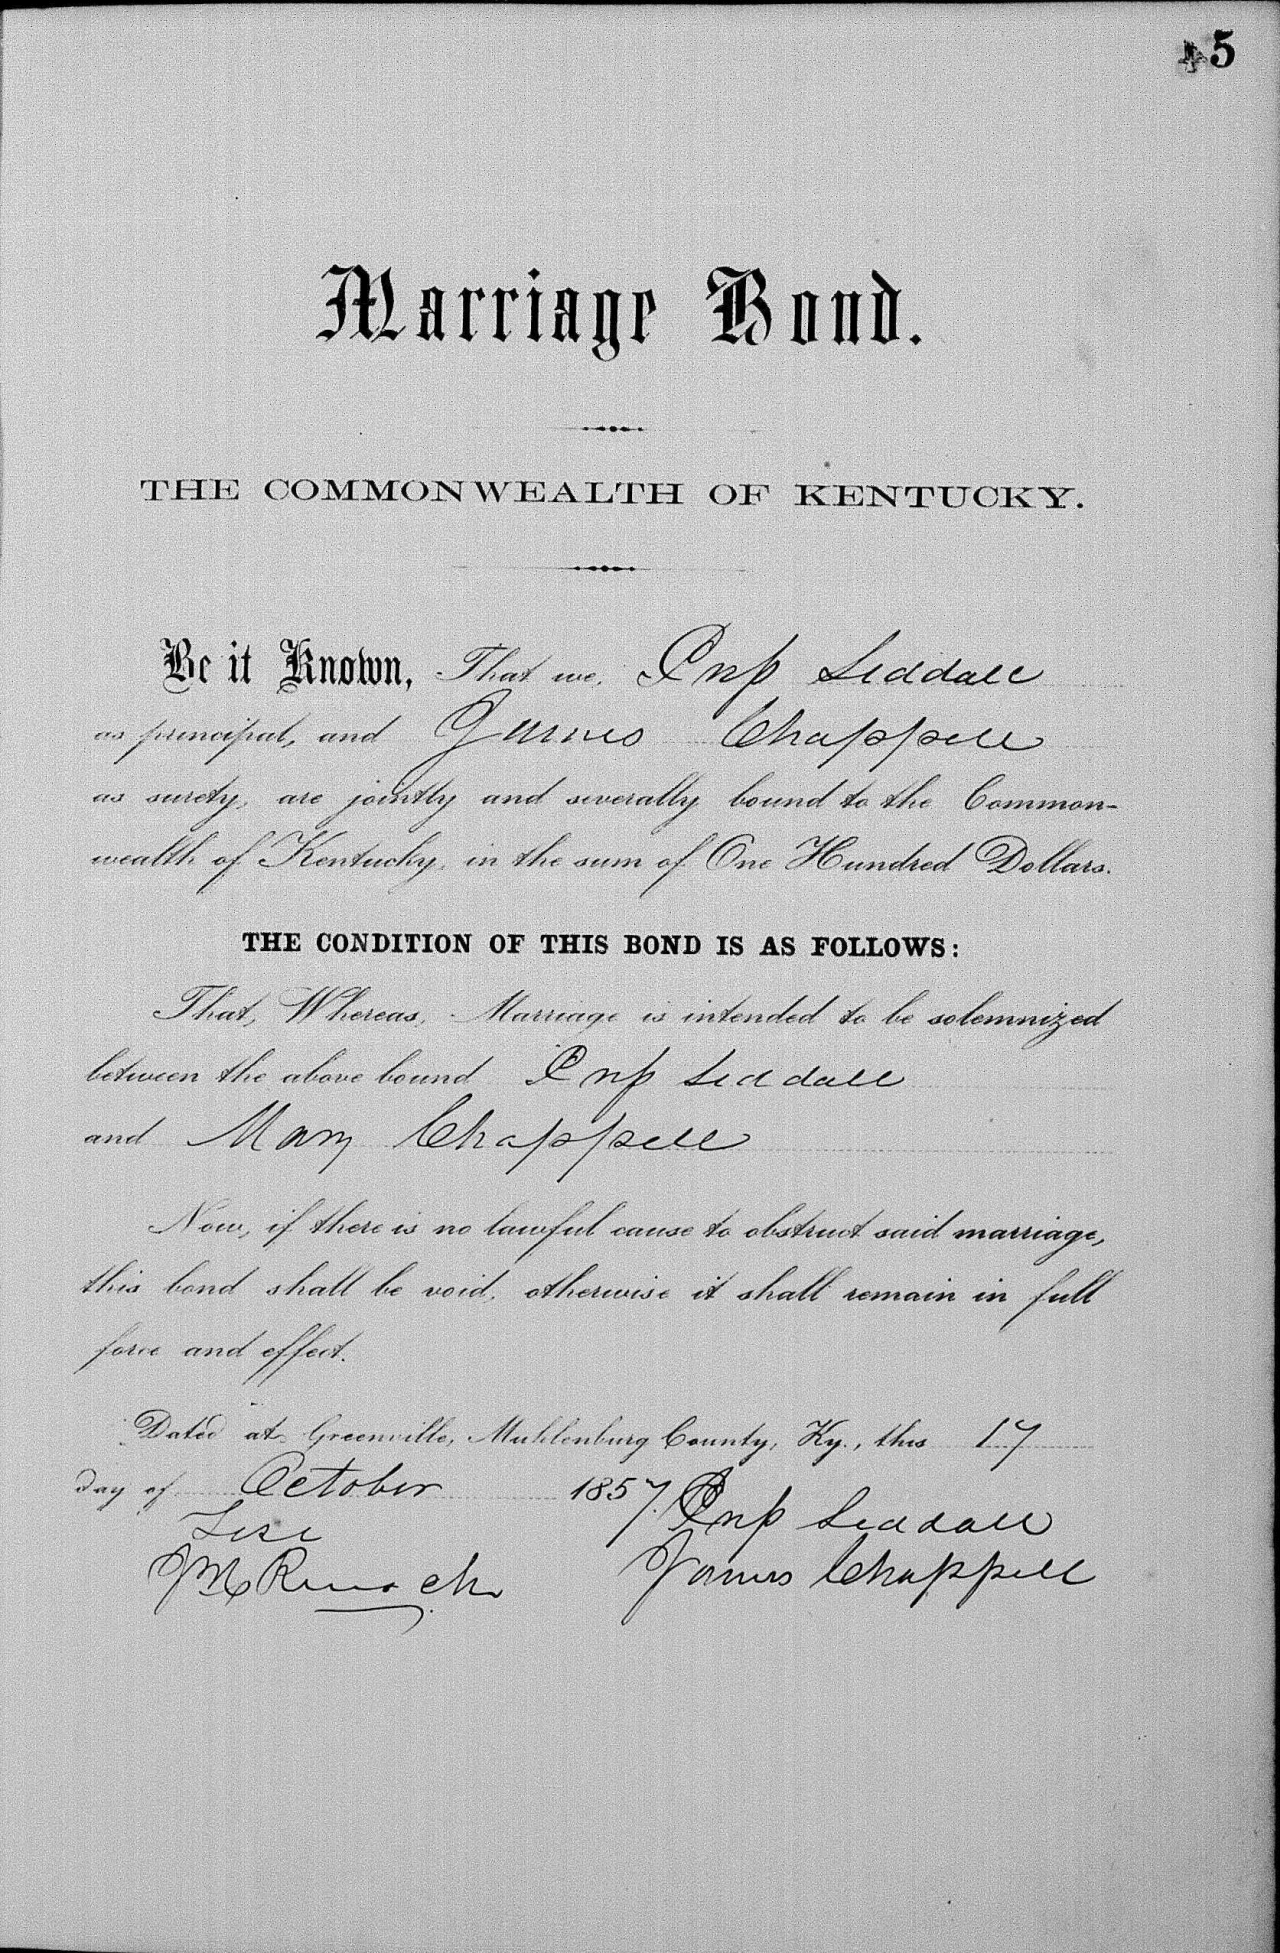 45
Marriage Bond.
THE COMMONWEALTH OF KENTUCKY.
Be it Known, That we,
as principal, and James Chappell
as surety, are jointly and severally bound to the Common-
wealth of Kentucky, in the sum of One Hundred Dollars.
THE CONDITION OF THIS BOND IS AS FOLLOWS:
That, Whereas, Marriage is intended to be solemnized
between the above bound
and Mary Chappell
Now, if there is no lawful cause to obstruct said marriage,
this bond shall be void, otherwise it shall remain in full
force and effect.
Dated at Greenville, Muhlenburg County, Ky., this 17
day of October 1857.
James Chappell